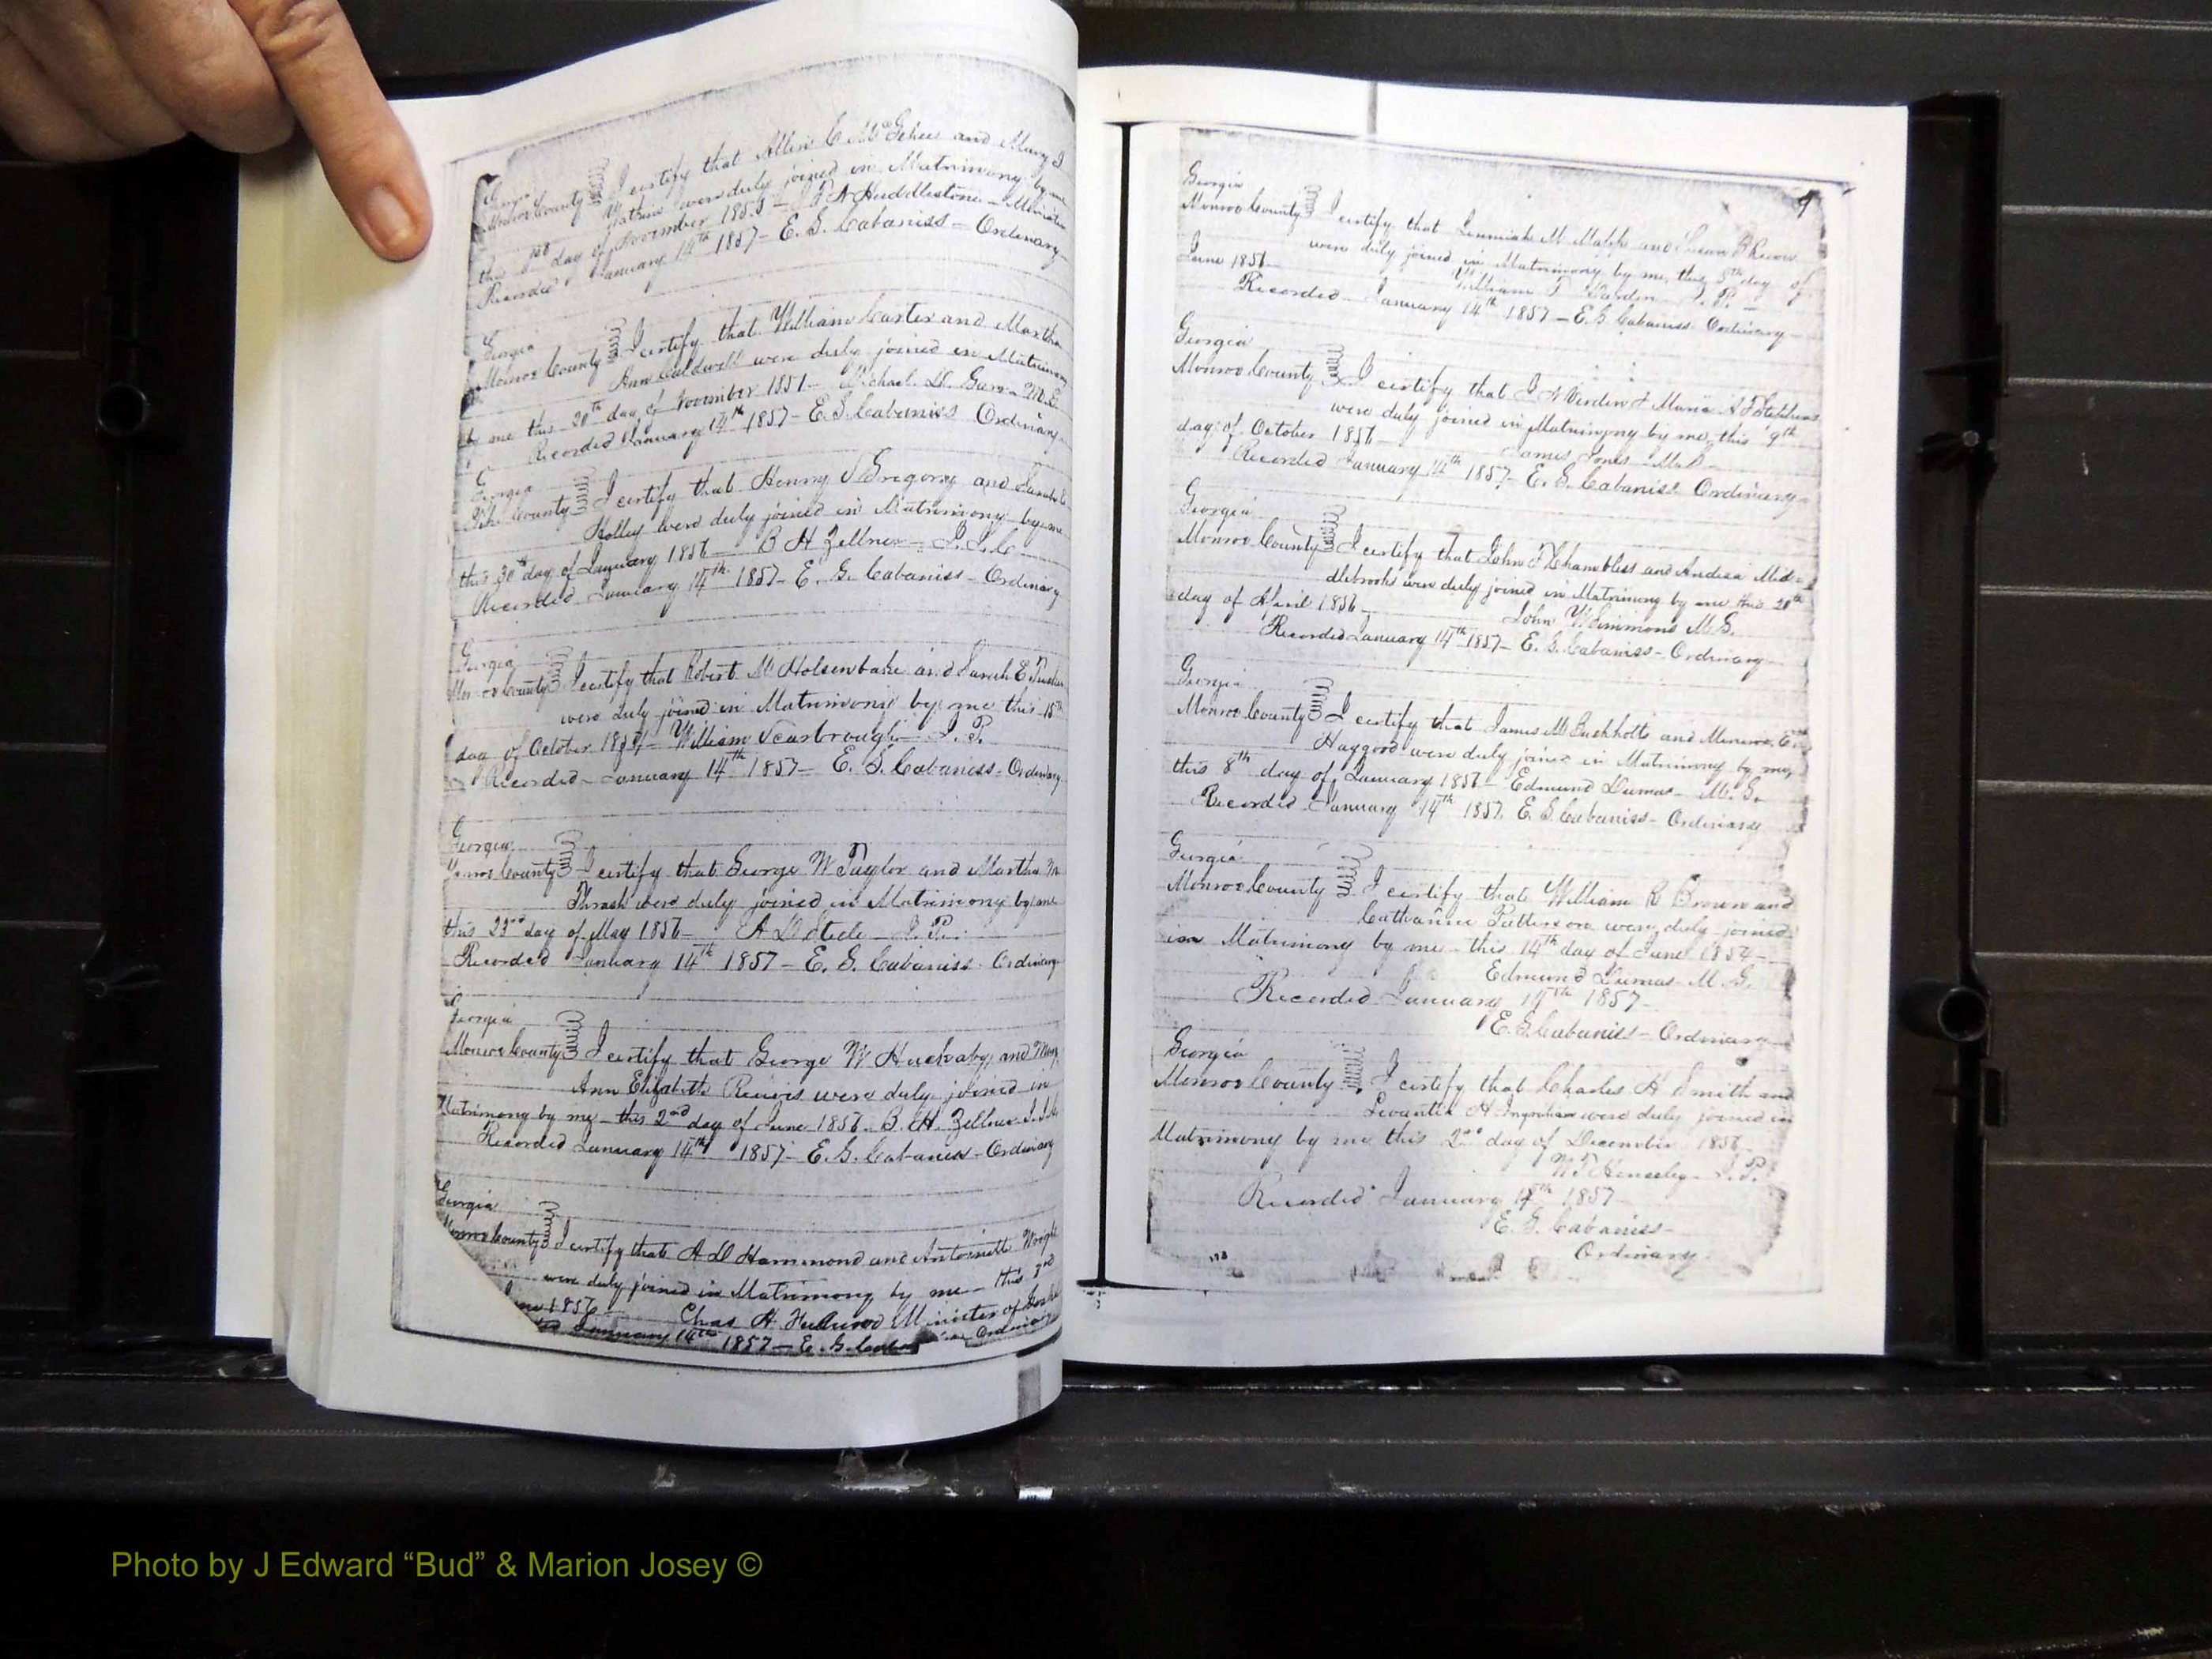 Georgia
Monroe County I certify that Allin C McGehee and Mary J
were duly joined in Matrimony by me
this 1st day of November 1855 – Huddlestone – Minister
Recorded January 14th 1857 – E. G. Cabaniss – Ordinary
Georgia
Monroe County I certify that William Carter and Martha
Ann Caldwell were duly joined in Matrimony
by me this 20th day of November 1851 – Michael M.G.
Recorded January 14th 1857 – E. G. Cabaniss Ordinary
Georgia
Pike County I certify that Henry Gregory and Sarah
Holley were duly joined in Matrimony by me
this 30th day of January 1856 – B H Zellner – J.I.C.
Recorded January 14th 1857 – E. G. Cabaniss – Ordinary
Georgia
Monroe County I certify that Robert M Holsenbake and Sarah E
were duly joined in Matrimony by me this 15th
day of October – William Scarbrough – J. P.
Recorded – January 14th 1857 – E. G. Cabaniss – Ordinary
Georgia
Monroe County I certify that George W Taylor and Martha M
Thrash were duly joined in Matrimony by me
this 23rd day of May 1856 – A D Steele – J. P.
Recorded January 14th 1857 – E. G. Cabaniss – Ordinary
Georgia
Monroe County I certify that George W Huckaby and Mary
Ann Elizabeth Reivis were duly joined in
Matrimony by me – this 2nd day of June 1856 – B. H. Zellner J.I.C.
Recorded January 14th 1857 – E. G. Cabaniss – Ordinary
Georgia
Monroe County I certify that A D Hammond and Antoinette Wright
were duly joined in Matrimony by me – this 3rd
June 1856 – Chas H Minister of
January 14th 1857 – E. G. Ordinary
9
Georgia
Monroe County I certify that M and Susan B
were duly joined in Matrimony by me this 8th day of
June 1851 – William Darden J. P. –
Recorded – January 14th 1857 – E. G. Cabaniss Ordinary –
Georgia
Monroe County I certify that J N Verden & Maria A F Stephens
were duly joined in Matrimony by me, this 9th
day of October 1856 – James Jones – M.G. –
Recorded January 14th 1857 – E. G. Cabaniss Ordinary –
Georgia
Monroe County I certify that John F Chambliss and Mid-
dlebrooks were duly joined in Matrimony by me this 20th
day of April 1856 – John W Simmons M.G.
Recorded January 14th 1857 – E. G. Cabaniss – Ordinary –
Georgia
Monroe County I certify that James M Buckholts and
Haygood were duly joined in Matrimony by me,
this 8th day of January 1856 – Edmund Dumas – M. G.
Recorded – January 14th 1857. E. G. Cabaniss – Ordinary
Georgia
Monroe County I certify that William R Brown and
Catharine Patterson were duly joined
in Matrimony by me – this 14th day of June 1854 –
Edmund Dumas – M. G.
Recorded January 14th 1857 –
E. G. Cabaniss – Ordinary
Georgia
Monroe County I certify that Charles H Smith and
were duly joined in
Matrimony by me this 2nd day of December 1856
Henseley – J. P.
Recorded January 14th 1857 –
E. G. Cabaniss –
Ordinary
Photo by J Edward “Bud” & Marion Josey ©